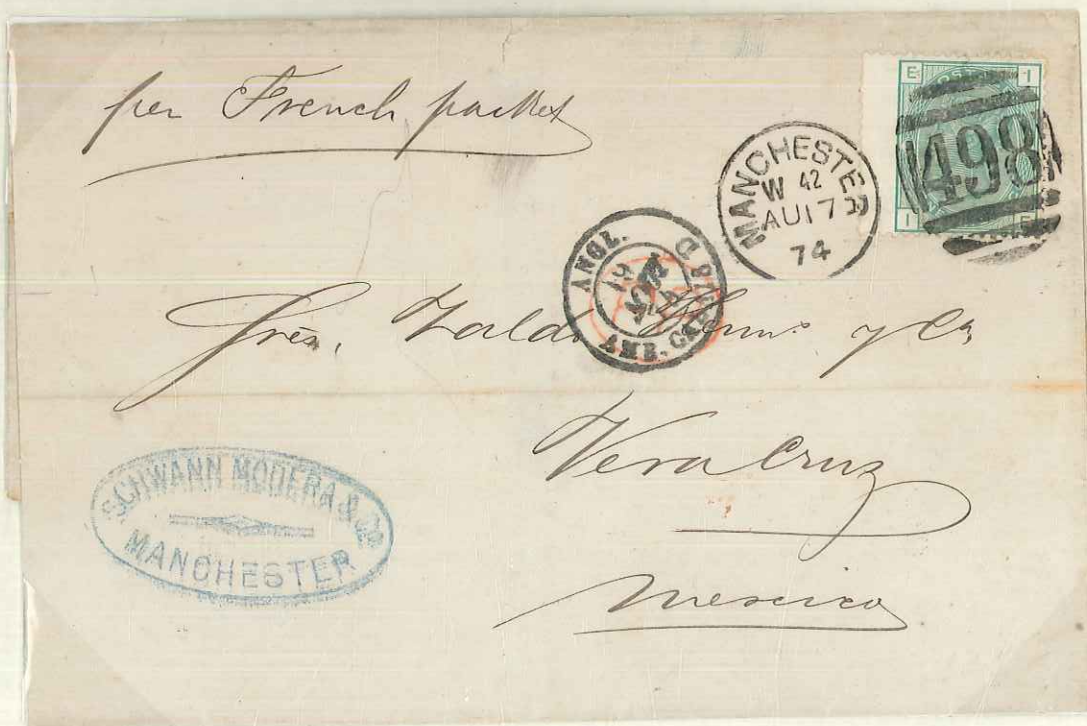 per French packet
E I
I E
498
MANCHESTER
W 42
AU 17
74
ANGL. AMB. CALAIS D
19
AOUT
74
Sres. y Ca
Vera Cruz
Mexico
SCHWANN MODERA & Co
MANCHESTER